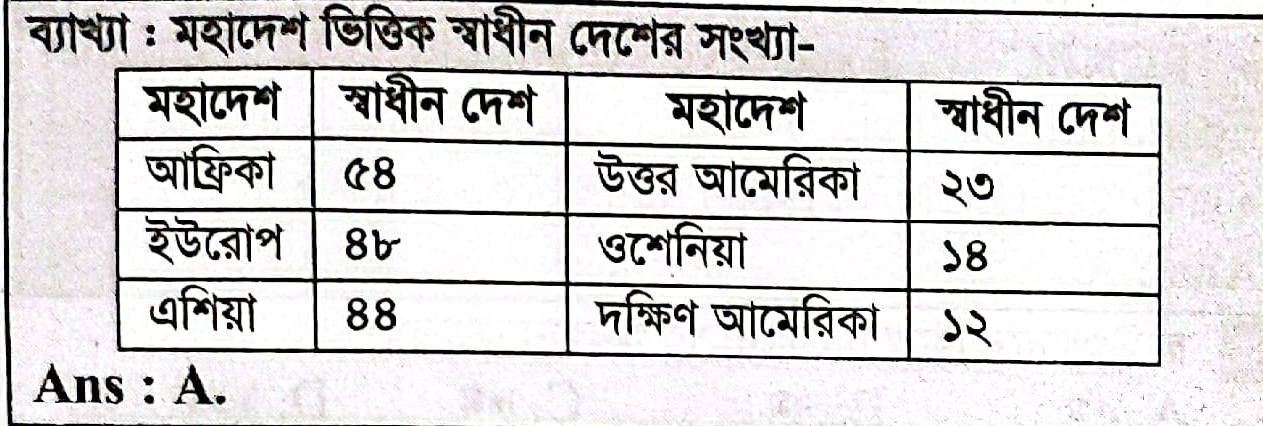 ব্যাখ্যা : মহাদেশ ভিত্তিক স্বাধীন দেশের সংখ্যা-
মহাদেশ স্বাধীন দেশ মহাদেশ স্বাধীন দেশ
আফ্রিকা ৫৪ উত্তর আমেরিকা ২৩
ইউরোপ ৪৮ ওশেনিয়া ১৪
এশিয়া ৪৪ দক্ষিণ আমেরিকা ১২
Ans : A.